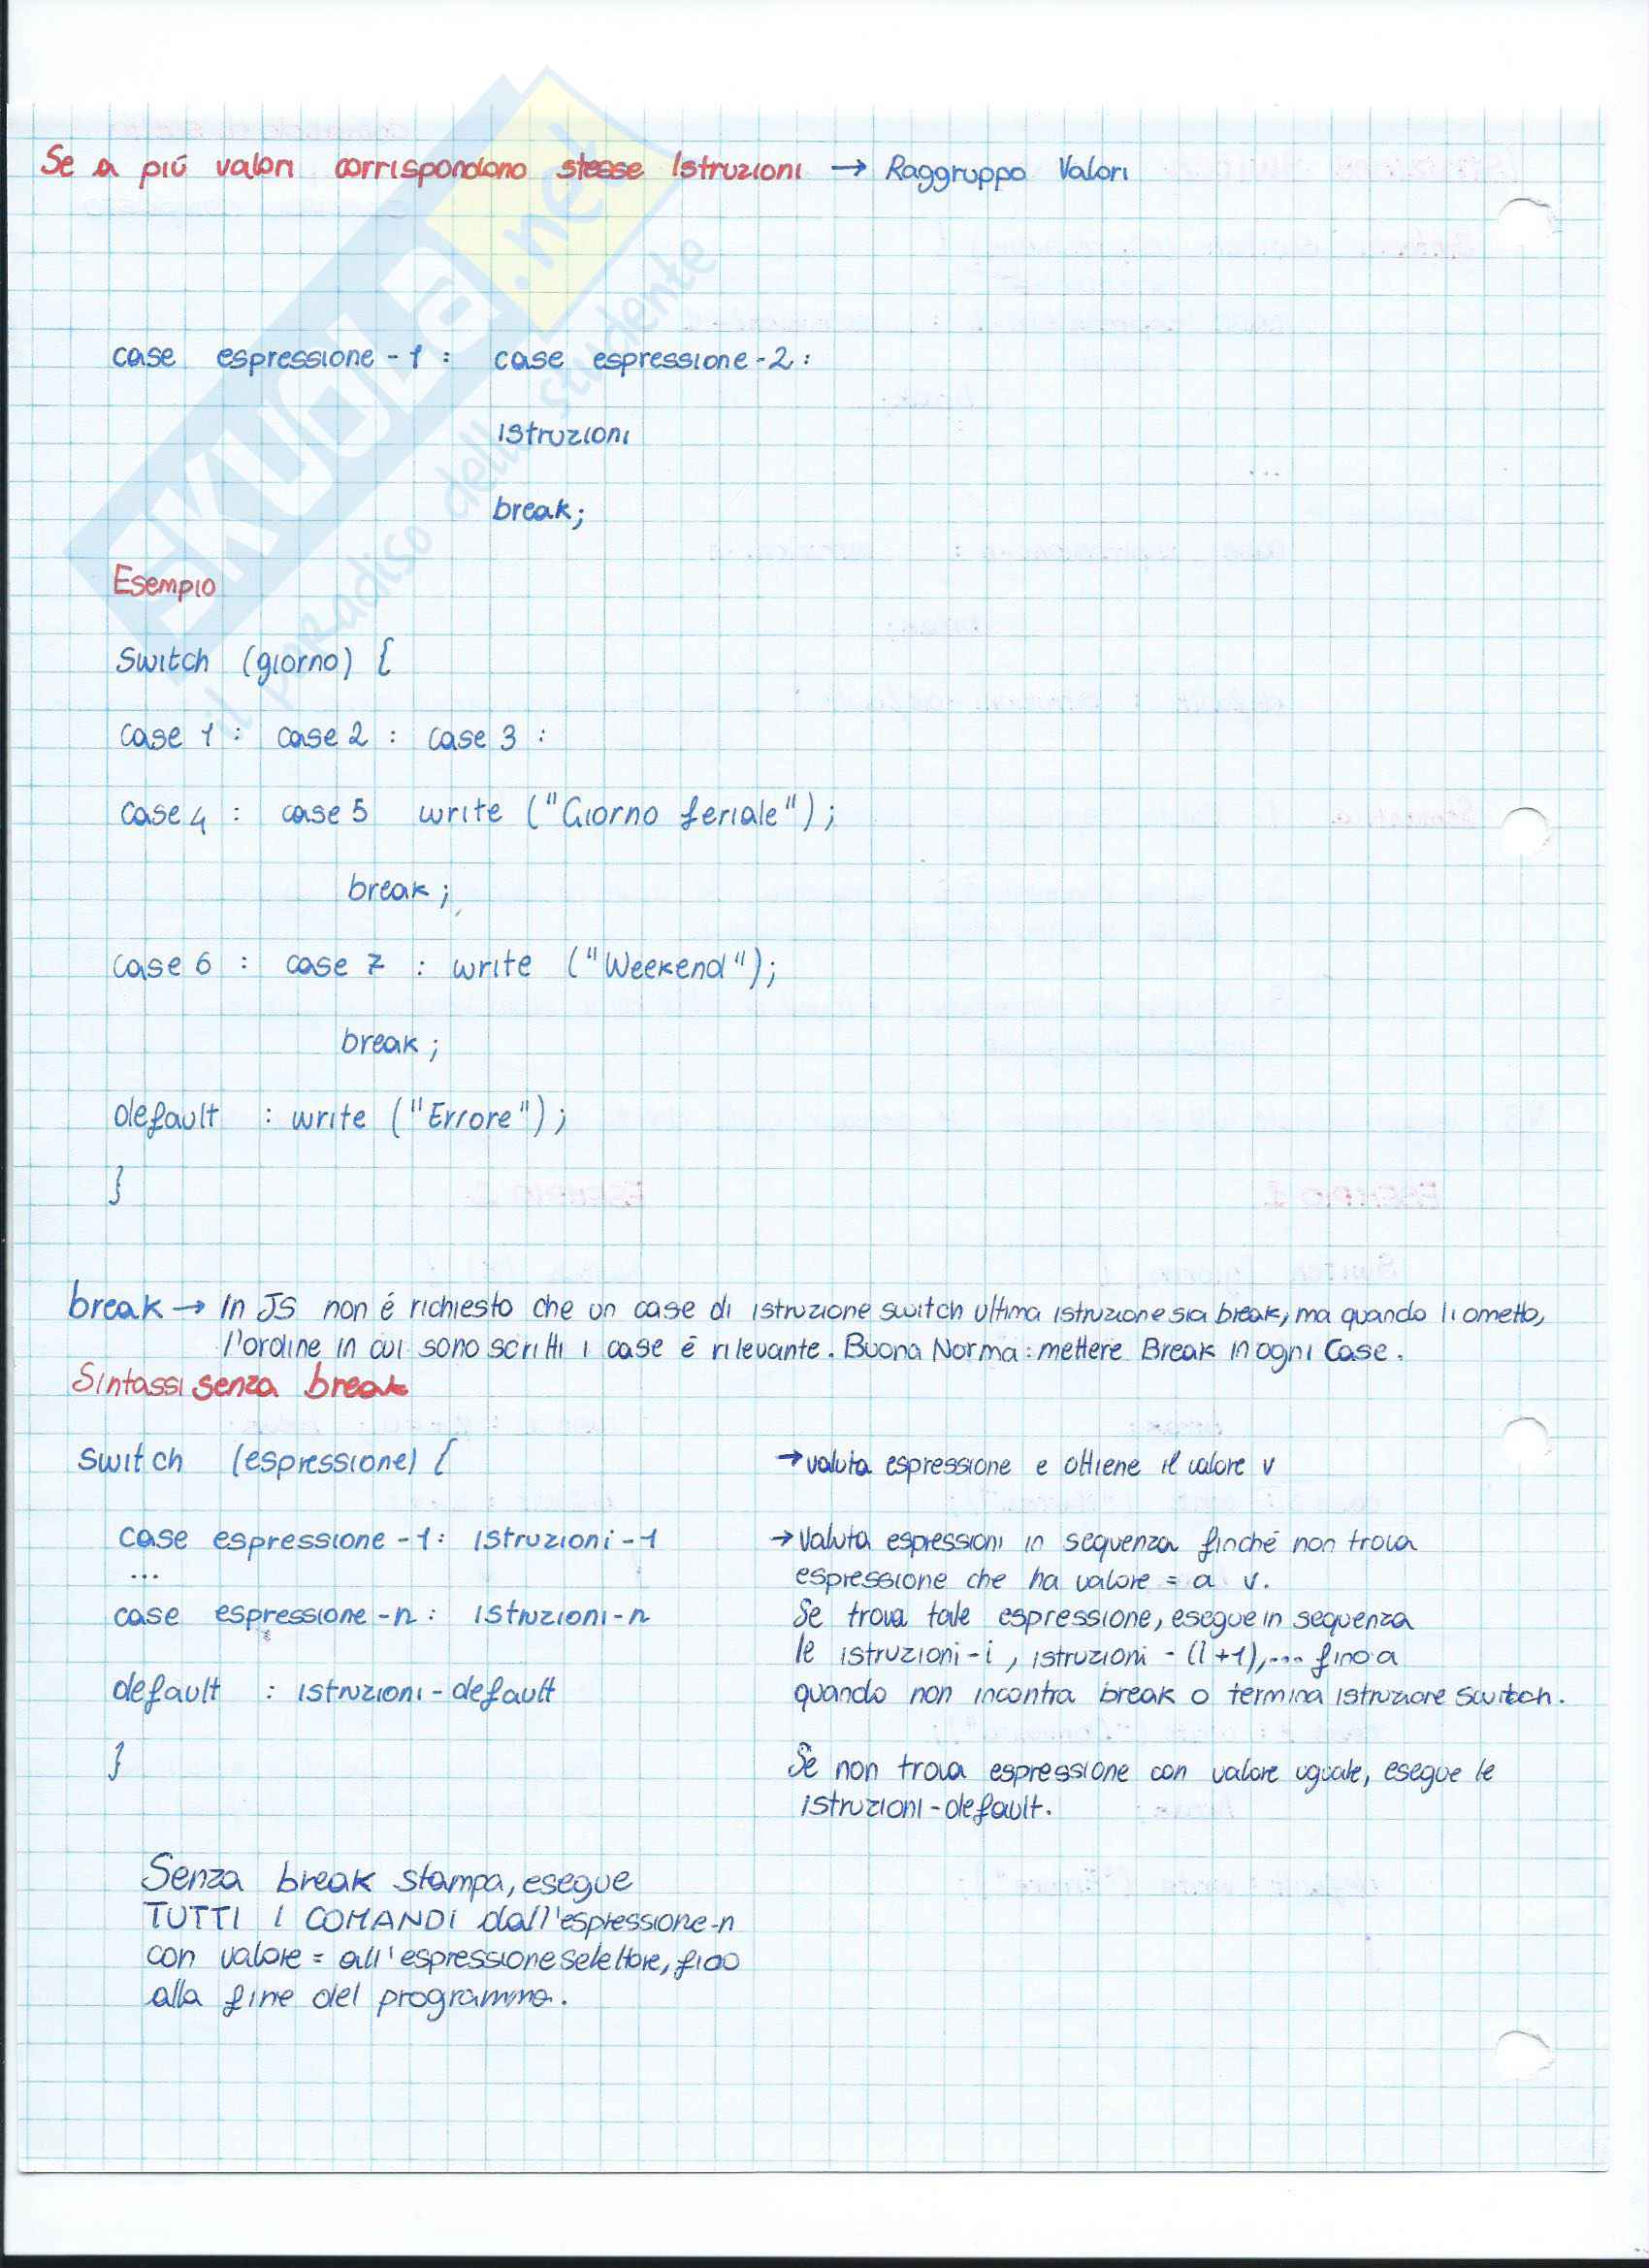 Se a più valori corrispondono stesse Istruzioni → Raggruppo Valori
case espressione-1 : case espressione-2 :
istruzioni
break;
Esempio
Switch (giorno) {
case 1 : case 2 : case 3 :
case 4 : case 5 write ("Giorno feriale");
break;
case 6 : case 7 : write ("Weekend");
break;
default : write ("Errore");
}
break → In JS non é richiesto che un case di istruzione switch ultima istruzione sia break, ma quando li ometto,
l'ordine in cui sono scritti i case é rilevante. Buona Norma: mettere Break in ogni Case.
Sintassi senza break
switch (espressione) { → valuta espressione e ottiene il valore v
case espressione-1: istruzioni-1 → Valuta espressioni in sequenza finché non trova
... espressione che ha valore = a v.
case espressione-n: istruzioni-n Se trova tale espressione, esegue in sequenza
le istruzioni-i, istruzioni-(i+1),... fino a
default : istruzioni-default quando non incontra break o termina istruzione switch.
} Se non trova espressione con valore uguale, esegue le
istruzioni-default.
Senza break stampa, esegue
TUTTI I COMANDI dall'espressione-n
con valore = all'espressione selettore, fino
alla fine del programma.
SKUOLA.net
il paradiso dello studente